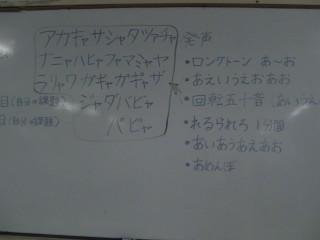 アカキャサシャタツァチャ
ナニャハヒャファマミャヤ
ラリャワガギャガギャザ
ジャダバビャ
パピャ
目(自分の課題)
(自分の課題)
発声
・ロングトーン あ～お
・あえいうえおあお
・回転五十音(あいうえ
・れるられろ 1分間
・あいあうあえあお
・あめんぼ